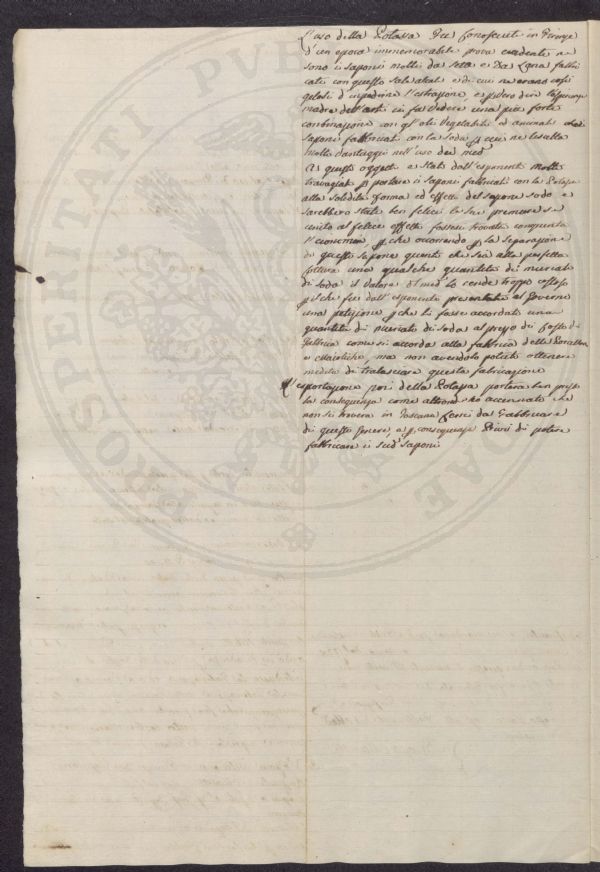 L'uso della Potassa Fu Conosciuto in Firenze
d'un epoca immemorabile prova evidente ne
sono i saponi molli da seta e Da Lana fabbri
cati con questo Salealcali e di cui ne erano così
gelosi d'impedirne l'estrazione, e
madre dell'arti in fa Vedere una più forte
combinazione con gl'oli Vegetabili ed animali
saponi fabbricati con la Soda p cui ne risulta
molti Vantaggi nell'uso dei med
A questi oggetti è Stato dall'esponente Molto
travagliato p portare i Saponi fabricati con la Potassa
alla Solidità forma ed effetti del sapone sodo e
sarebbero State ben felici le Sue premure se
unito al felice effetto fosse trovata congiunta
l'economia p che occorrendo p la Separazione
di questo sapone quanto che Sia alla perfetta
Cottura una qualche quantità di muriato
di Soda il Valore del med lo rende troppo costoso
p il che fu dall'esponente presentata al Governo
una petizione p che li fosse accordato una
quantità di Muriato di Soda al prezzo di Costo di
fabbrica come si accorda alla fabbrica delle
e Maioliche, ma non avendolo potuto ottenere
di tralasciare questa fabricazione
L'esportazione poi della Potassa porterà ben presto
la conseguenza come altrove ho accennato che
non si troverà in Toscana Ceneri da Fabbricare
di questo genere, e p conseguenza Privi di potere
fabbricare i Sud Saponi